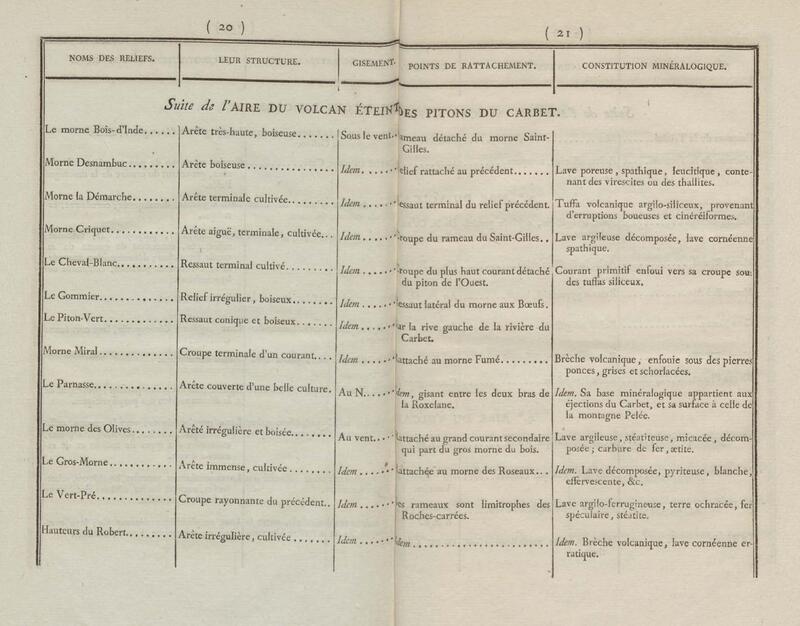 ( 20 )
( 21 )
NOMS DES RELIEFS. LEUR STRUCTURE. GISEMENT. POINTS DE RATTACHEMENT. CONSTITUTION MINÉRALOGIQUE.
Suite de l'AIRE DU VOLCAN ÉTEINT DES PITONS DU CARBET.
Le morne Bois-d'Inde...... Arête très-haute, boiseuse....... Sous le vent. ameau détaché du morne Saint-
Gilles.
Morne Desnambuc......... Arête boiseuse............... Idem....... elief rattaché au précédent....... Lave poreuse, spathique, leucitique, conte-
nant des virescites ou des thallites.
Morne la Démarche........ Arête terminale cultivée......... Idem....... essaut terminal du relief précédent. Tuffa volcanique argilo-siliceux, provenant
d'erruptions boueuses et cinéréiformes.
Morne Criquet............ Arête aiguë, terminale, cultivée... Idem....... roupe du rameau du Saint-Gilles.. Lave argileuse décomposée, lave cornéenne
spathique.
Le Cheval-Blanc.......... Ressaut terminal cultivé......... Idem....... roupe du plus haut courant détaché Courant primitif enfoui vers sa croupe sou:
du piton de l'Ouest. des tuffas siliceux.
Le Gommier.............. Relief irrégulier, boiseux........ Idem....... essaut latéral du morne aux Bœufs.
Le Piton-Vert............ Ressaut conique et boiseux....... Idem....... ur la rive gauche de la rivière du
Carbet.
Morne Miral.............. Croupe terminale d'un courant.... Idem....... attaché au morne Fumé......... Brèche volcanique, enfouie sous des pierres
ponces, grises et schorlacées.
Le Parnasse.............. Arête couverte d'une belle culture. Au N....... dem, gisant entre les deux bras de Idem. Sa base minéralogique appartient aux
la Roxelane. éjections du Carbet, et sa surface à celle de
la montagne Pelée.
Le morne des Olives....... Arêté irrégulière et boisée........ Au vent.... attaché au grand courant secondaire Lave argileuse, stéatiteuse, micacée, décom-
qui part du gros morne du bois. posée; carbure de fer, ætite.
Le Gros-Morne........... Arête immense, cultivée......... Idem....... attachée au morne des Roseaux... Idem. Lave décomposée, pyriteuse, blanche,
effervescente, &c.
Le Vert-Pré.............. Croupe rayonnante du précédent.. Idem....... es rameaux sont limitrophes des Lave argilo-ferrugineuse, terre ochracée, fer
Roches-carrées. spéculaire, stéatite.
Hauteurs du Robert........ Arête irrégulière, cultivée....... Idem....... dem......................... Idem. Brèche volcanique, lave cornéenne er-
ratique.